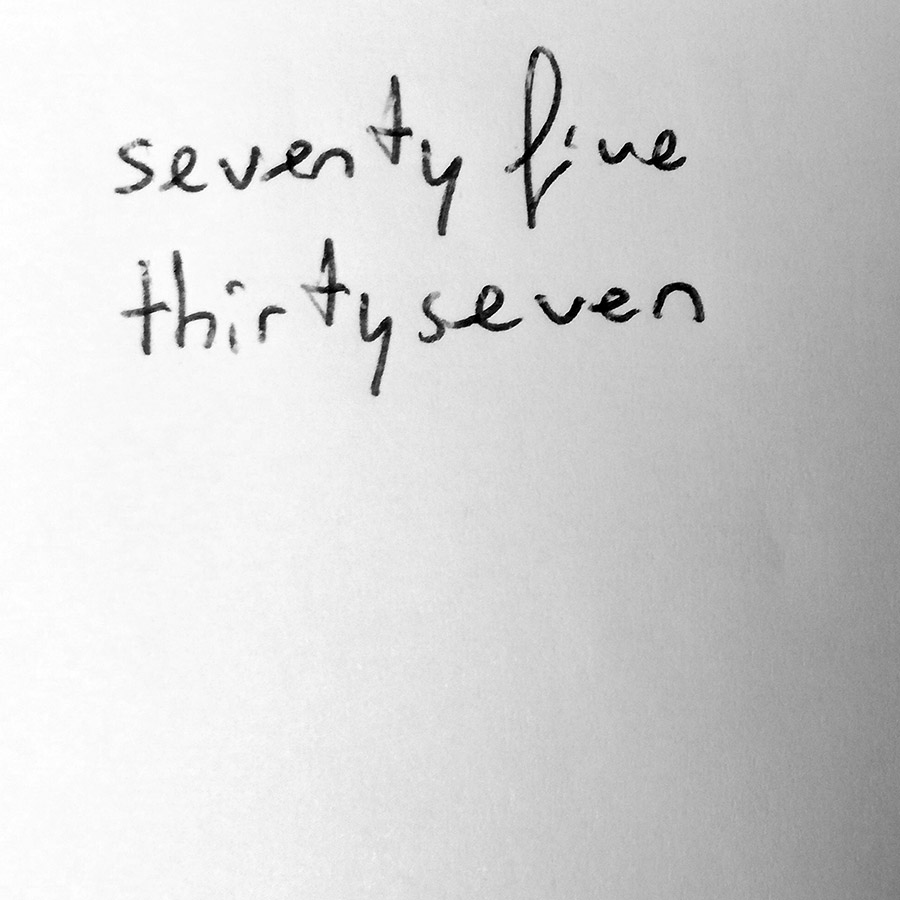 seventy five
thirtyseven